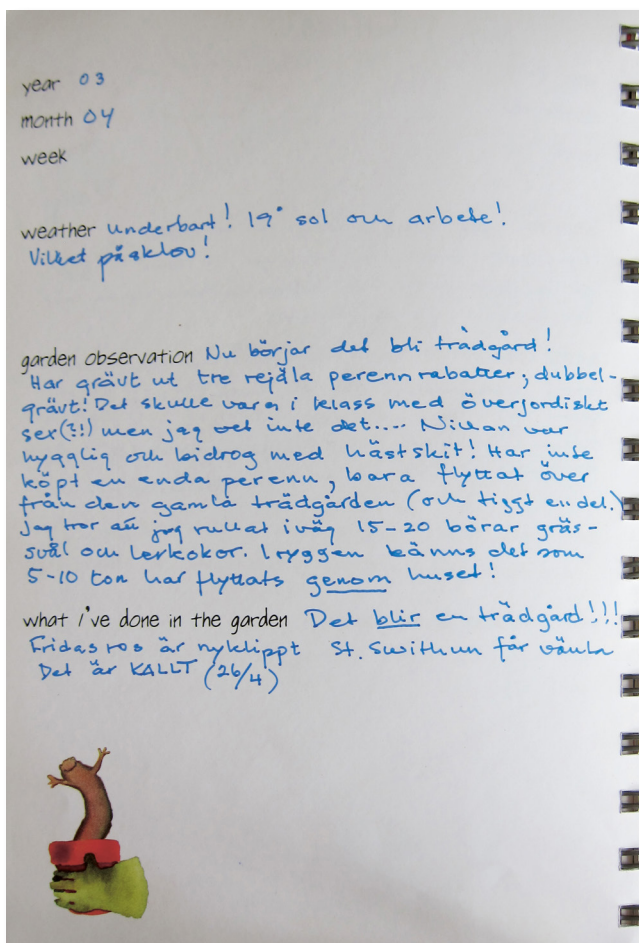 year 03
month 04
week
weather Underbart! 19° sol och arbete!
Vilket påsklov!
garden observation Nu börjar det bli trädgård!
Har grävt ut tre rejäla perennrabatter, dubbel-
grävt! Det skulle vara i klass med överjordiskt
sex(?!!) men jag vet inte det.... Nillan var
hygglig och bidrog med hästskit! Har inte
köpt en enda perenn, bara flyttat över
från den gamla trädgården (och tiggt en del.)
Jag tror att jag rullat iväg 15-20 börar gräs-
svål och lerkokor. I ryggen känns det som
5-10 ton har flyttats genom huset!
what i've done in the garden Det blir en trädgård!!!
Fridas ros är nyklippt St. Swithun får vänta
Det är KALLT (26/4)